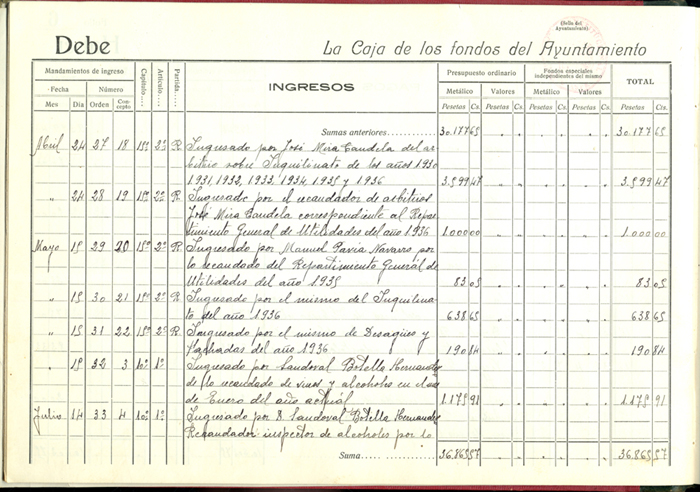 (Sello del Ayuntamiento)
Debe
La Caja de los fondos del Ayuntamiento
Mandamientos de ingreso Capítulo.... Artículo.... Partida.... INGRESOS Presupuesto ordinario Fondos especiales independientes del mismo TOTAL
Fecha Número Metálico Valores Metálico Valores
Mes Día Orden Concepto Pesetas Cs. Pesetas Cs. Pesetas Cs. Pesetas Cs. Pesetas Cs.
Sumas anteriores............ 30.177 65 30.177 65
Abril 24 27 18 15º 2º R. Ingresado por José Mira Candela del ar-
bitrio sobre Inquilinato de los años 1930
1931, 1932, 1933, 1934, 1935 y 1936 3.599 47 3.599 47
" 24 28 19 15º 2º R. Ingresado por el recaudador de arbitrios
José Mira Candela correspondiente al Repar-
timiento General de Utilidades del año 1936 1.000 00 1.000 00
Mayo 15 29 20 15º 2º R. Ingresado por Manuel Pavia Navarro por
lo recaudado del Repartimiento General de
Utilidades del año 1935 83 05 83 05
" 15 30 21 15º 2º R. Ingresado por el mismo del Inquilina-
to del año 1936 638 65 638 65
" 15 31 22 15º 2º R. Ingresado por el mismo de Desagües y
Fachadas del año 1936 190 84 190 84
" 15 32 3 10º 1º Ingresado por Sandoval Botella Hernandez
de lo recaudado de vinos y alcoholes en
de Enero del año actual 1.175 91 1.175 91
Julio 14 33 4 10º 1º Ingresado por Sandoval Botella Hernandez
Recaudador inspector de alcoholes por lo
Suma............ 36.865 57 36.865 57